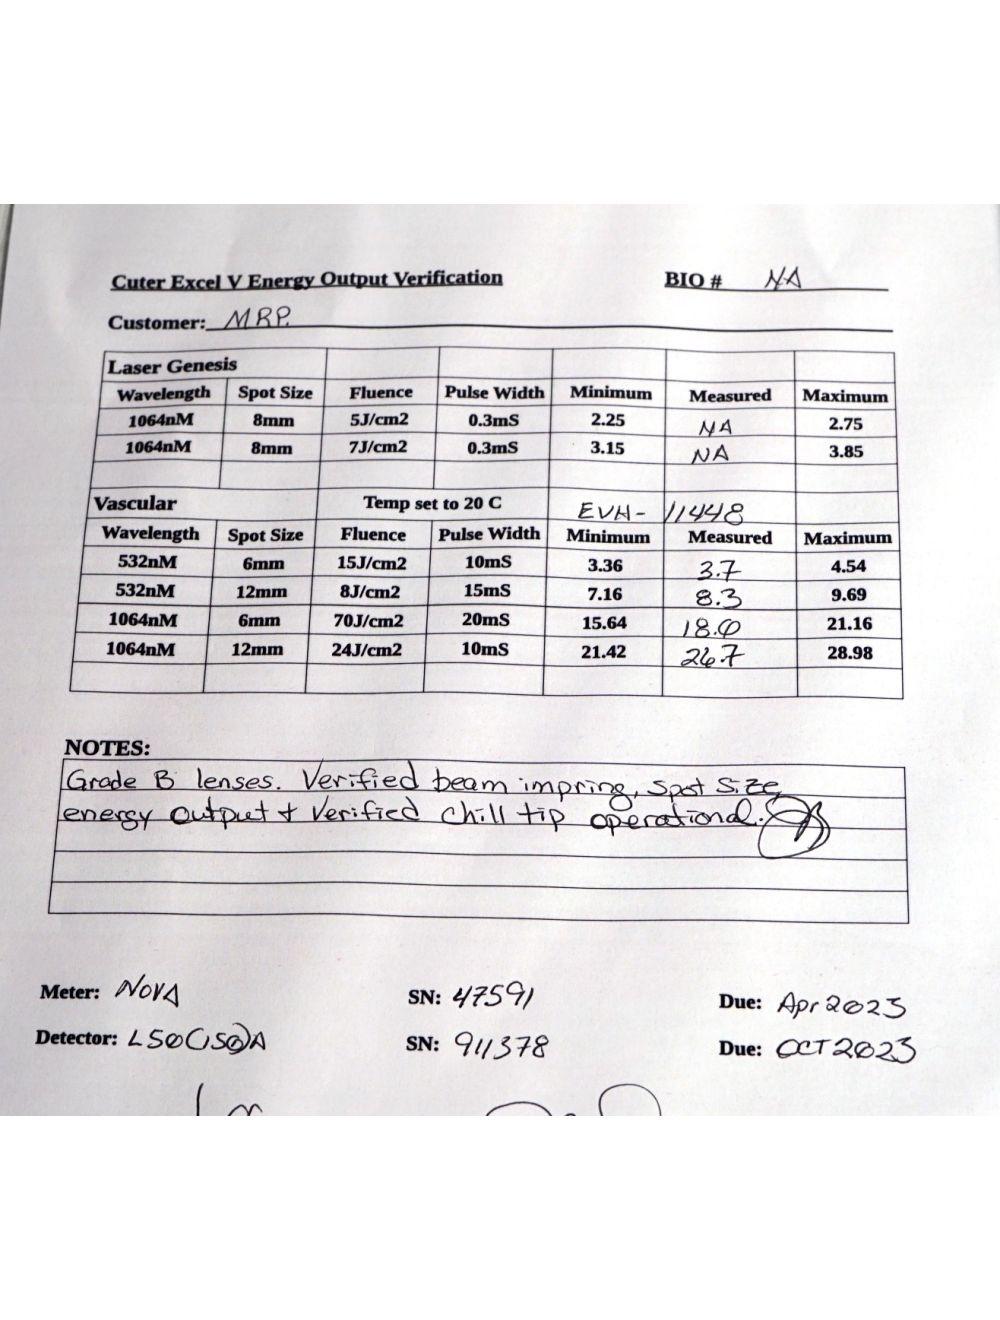 Cuter Excel V Energy Output Verification BIO # NA
Customer: MRP.
Laser Genesis
Wavelength Spot Size Fluence Pulse Width Minimum Measured Maximum
1064nM 8mm 5J/cm2 0.3mS 2.25 NA 2.75
1064nM 8mm 7J/cm2 0.3mS 3.15 NA 3.85
Vascular Temp set to 20 C EVH- 11448
Wavelength Spot Size Fluence Pulse Width Minimum Measured Maximum
532nM 6mm 15J/cm2 10mS 3.36 3.7 4.54
532nM 12mm 8J/cm2 15mS 7.16 8.3 9.69
1064nM 6mm 70J/cm2 20mS 15.64 18.0 21.16
1064nM 12mm 24J/cm2 10mS 21.42 26.7 28.98
NOTES:
Grade B lenses. Verified beam impring, Spot Size,
energy output + Verified chill tip operational.
Meter: NOVA SN: 47591 Due: Apr 2023
Detector: L50(150)A SN: 911378 Due: OCT 2023